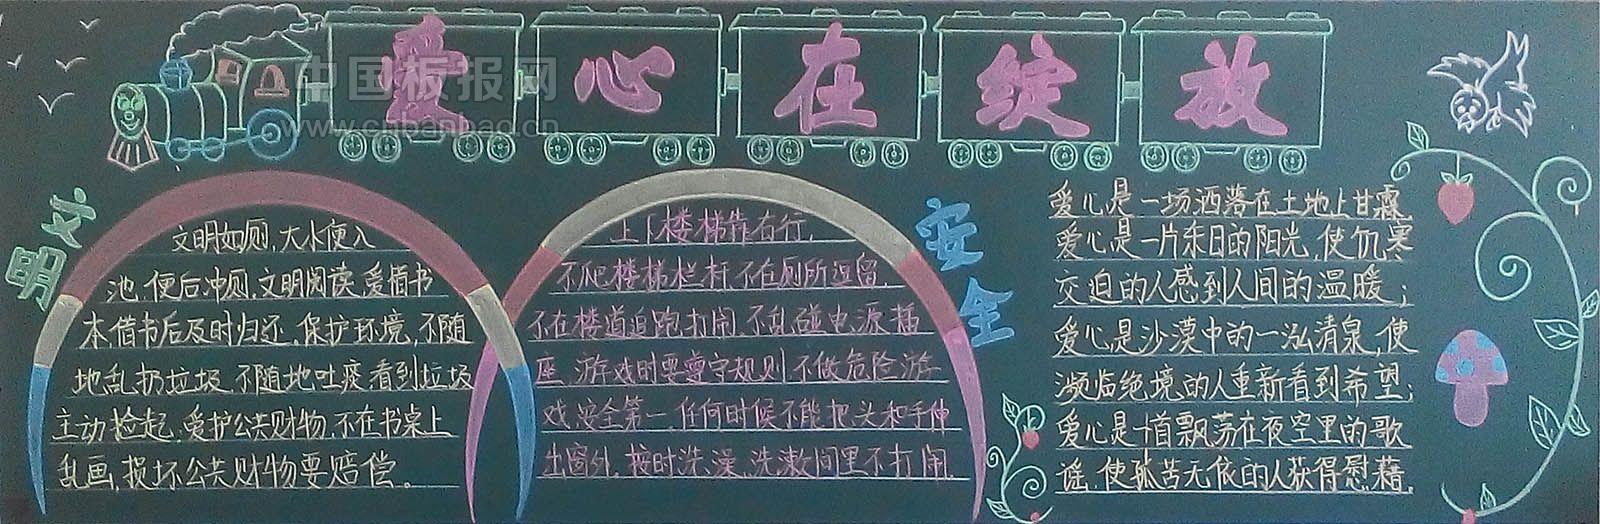 爱心在绽放
中国板报网
www.cnbanbao.cn
文明
文明如厕,大小便入
池,便后冲厕,文明阅读,爱惜书
本,借书后及时归还,保护环境,不随
地乱扔垃圾,不随地吐痰看到垃圾
主动捡起,爱护公共财物,不在书桌上
乱画,损坏公共财物要赔偿。
安全
上下楼梯靠右行,
不爬楼梯栏杆,不在厕所逗留,
不在楼道追跑打闹,不乱碰电源插
座,游戏时要遵守规则不做危险游
戏,安全第一,任何时候不能把头和手伸
出窗外,按时洗澡,洗漱间里不打闹,
爱心是一场洒落在土地上甘霖,
爱心是一片冬日的阳光,使饥寒
交迫的人感到人间的温暖;
爱心是沙漠中的一泓清泉,使
濒临绝境的人重新看到希望;
爱心是一首飘荡在夜空里的歌
谣,使孤苦无依的人获得慰藉,